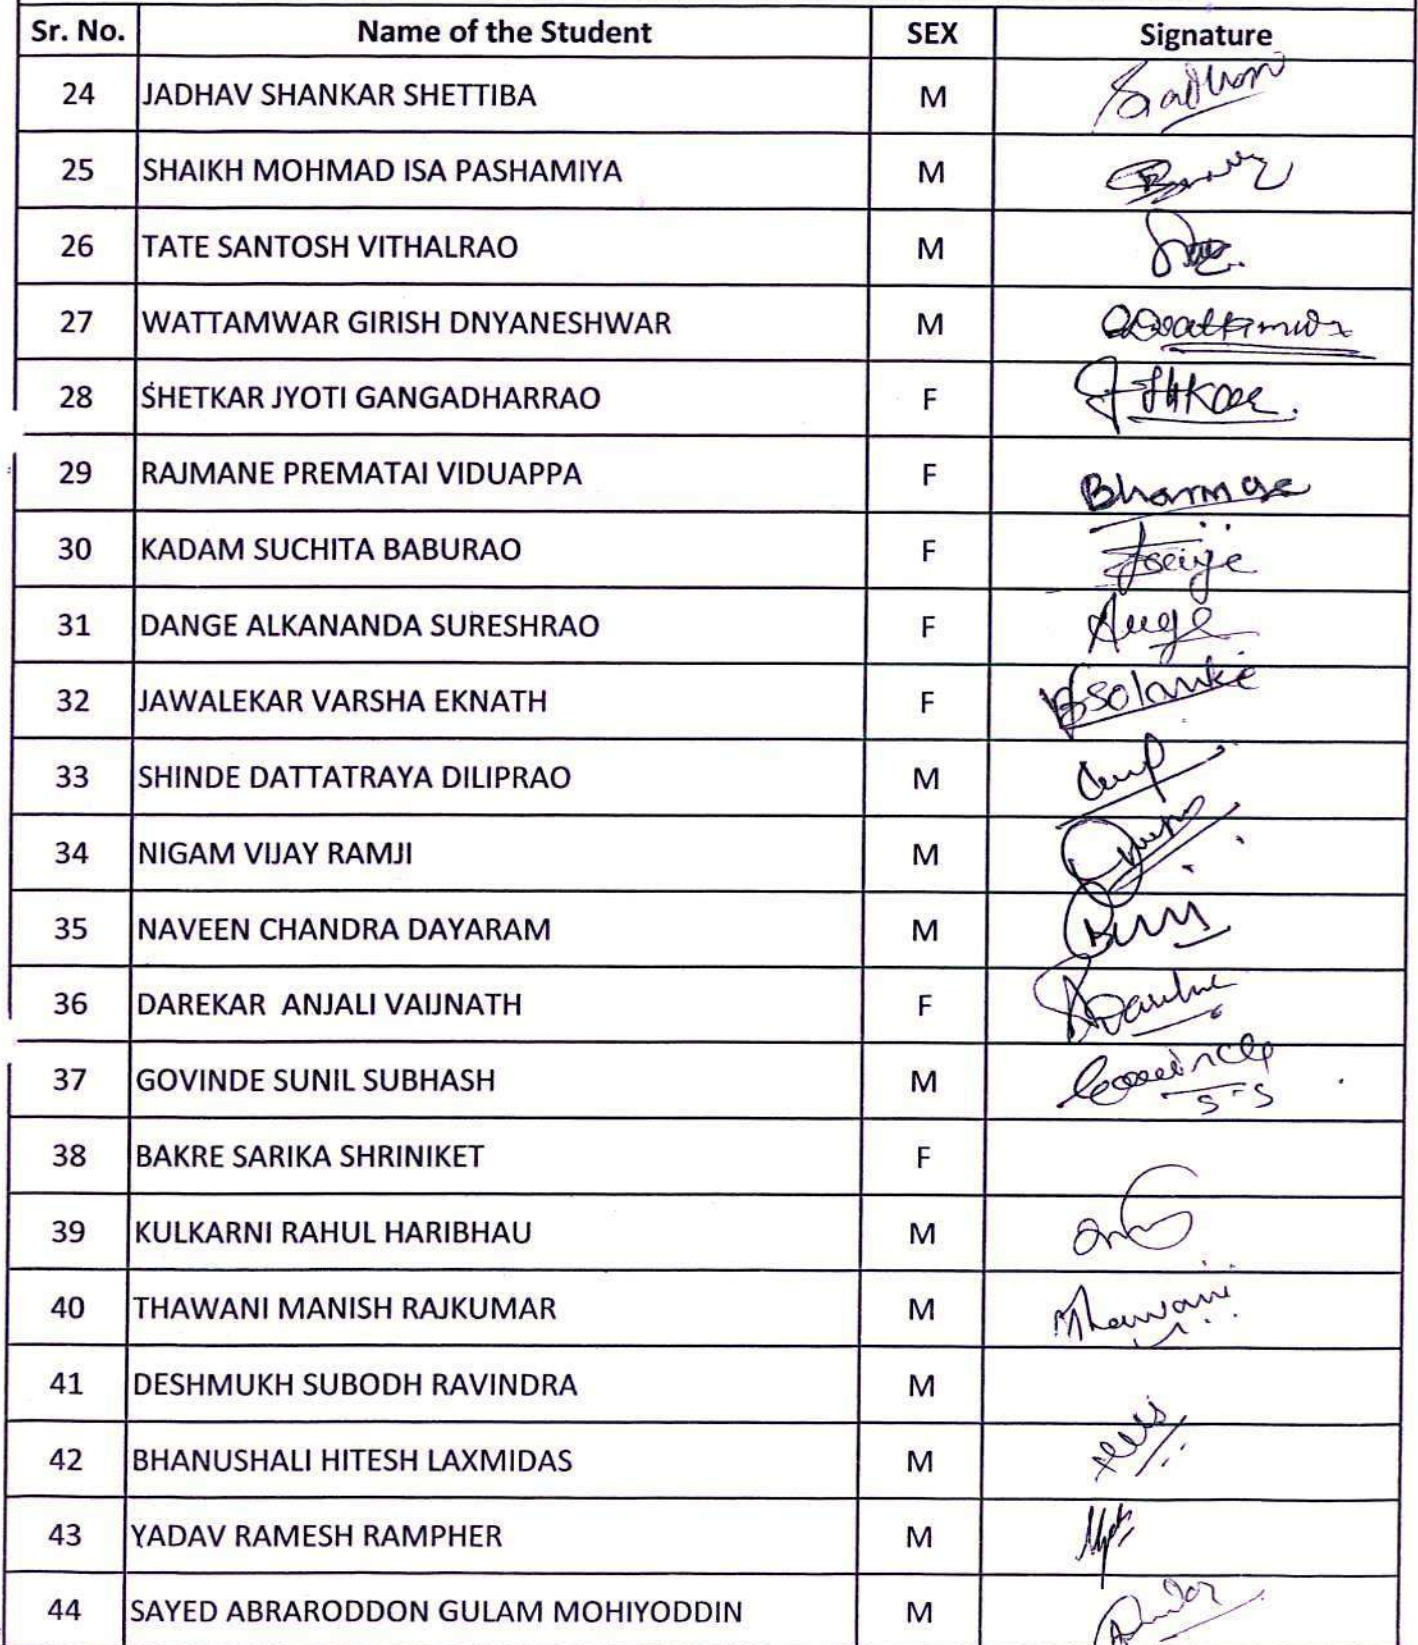 Sr. No. Name of the Student SEX Signature
24 JADHAV SHANKAR SHETTIBA M
25 SHAIKH MOHMAD ISA PASHAMIYA M
26 TATE SANTOSH VITHALRAO M
27 WATTAMWAR GIRISH DNYANESHWAR M
28 SHETKAR JYOTI GANGADHARRAO F
29 RAJMANE PREMATAI VIDUAPPA F
30 KADAM SUCHITA BABURAO F
31 DANGE ALKANANDA SURESHRAO F
32 JAWALEKAR VARSHA EKNATH F Solanke
33 SHINDE DATTATRAYA DILIPRAO M
34 NIGAM VIJAY RAMJI M
35 NAVEEN CHANDRA DAYARAM M
36 DAREKAR ANJALI VAIJNATH F
37 GOVINDE SUNIL SUBHASH M
38 BAKRE SARIKA SHRINIKET F
39 KULKARNI RAHUL HARIBHAU M
40 THAWANI MANISH RAJKUMAR M Thawani
41 DESHMUKH SUBODH RAVINDRA M
42 BHANUSHALI HITESH LAXMIDAS M
43 YADAV RAMESH RAMPHER M
44 SAYED ABRARODDON GULAM MOHIYODDIN M